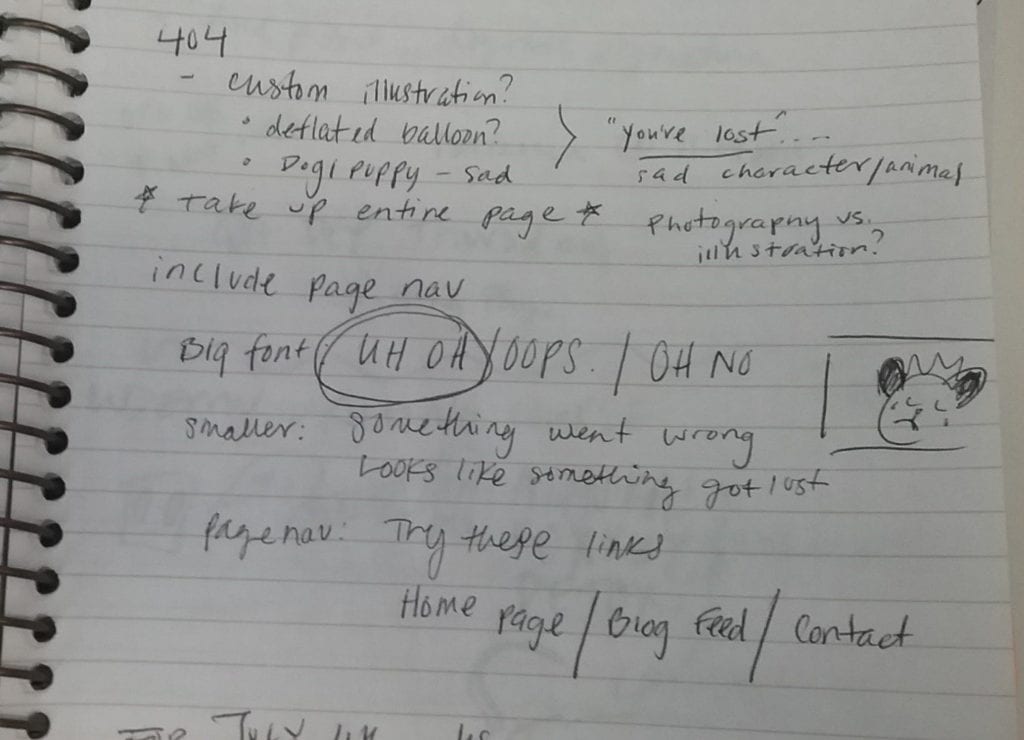 404
- custom illustration?
• deflated balloon?
• Dog/puppy - sad
"you're lost"...
sad character/animal
* Take up entire page *
photography vs.
illustration?
include page nav
Big font UH OH / OOPS. / OH NO
smaller: something went wrong
Looks like something got lost
page nav: Try these links
Home page / Blog Feed / Contact
July